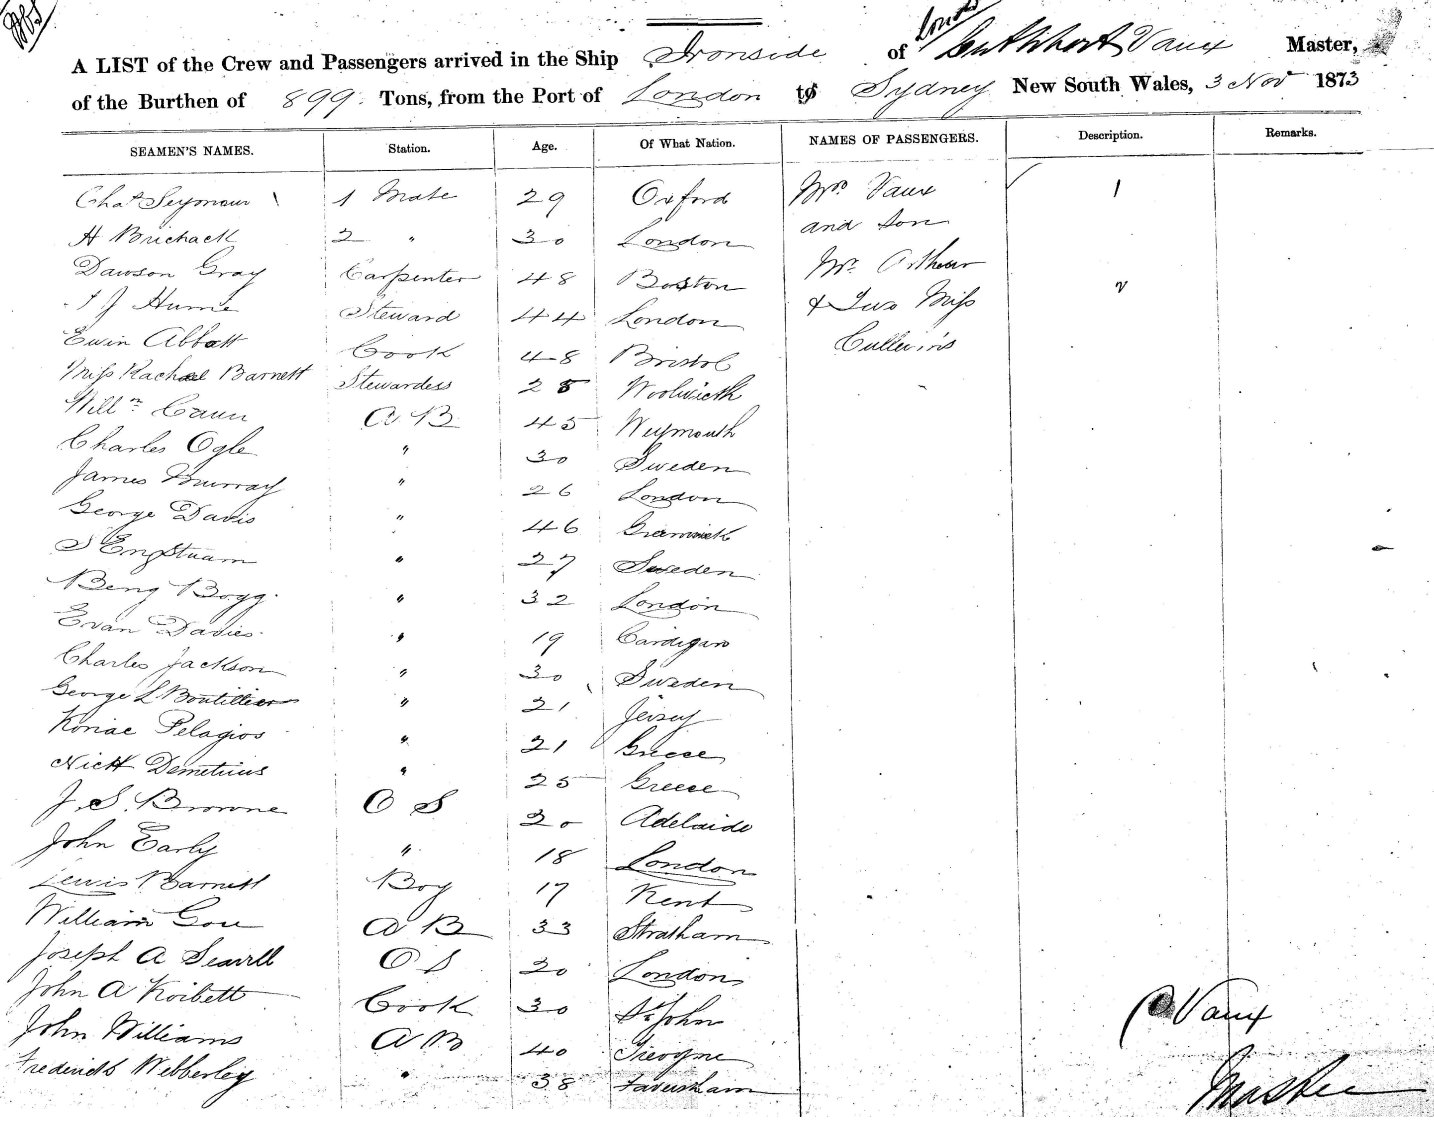 A LIST of the Crew and Passengers arrived in the Ship Ironside of Vaux Master,
of the Burthen of 899 Tons, from the Port of London to Sydney New South Wales, 3 Nov 1873
SEAMEN'S NAMES. Station. Age. Of What Nation. NAMES OF PASSENGERS. Description. Remarks.
Chas Seymour 1 Mate 29 Oxford Mrs Vaux 1
and Son
H 2 " 30 London
Dawson Gray Carpenter 48 Boston Mr Arthur
J Hume Steward 44 London & Two Miss 2
Ewin Abbott Cook 48 Bristol
Miss Rachael Barnett Stewardess 28 Woolwich
Willm A B 45 Weymouth
Charles Ogle " 30 Sweden
James Murray " 26 London
George Davis " 46 Greenwich
" 27 Sweden
Beng Bogg " 32 London
Evan Davies " 19 Cardigan
Charles Jackson " 30 Sweden
George L Boutillier " 21 Jersey
Pelagios " 21 Greece
Nich Demetrius " 25 Greece
J. S. Browne O S 20 Adelaide
John Early " 18 London
Lewis Barnett Boy 17 Kent
William A B 33
Joseph A O S 20 London
John A Cook 30 St John
C Vaux
John Williams A B 40
Frederick Webberley " 38 Faversham
Master